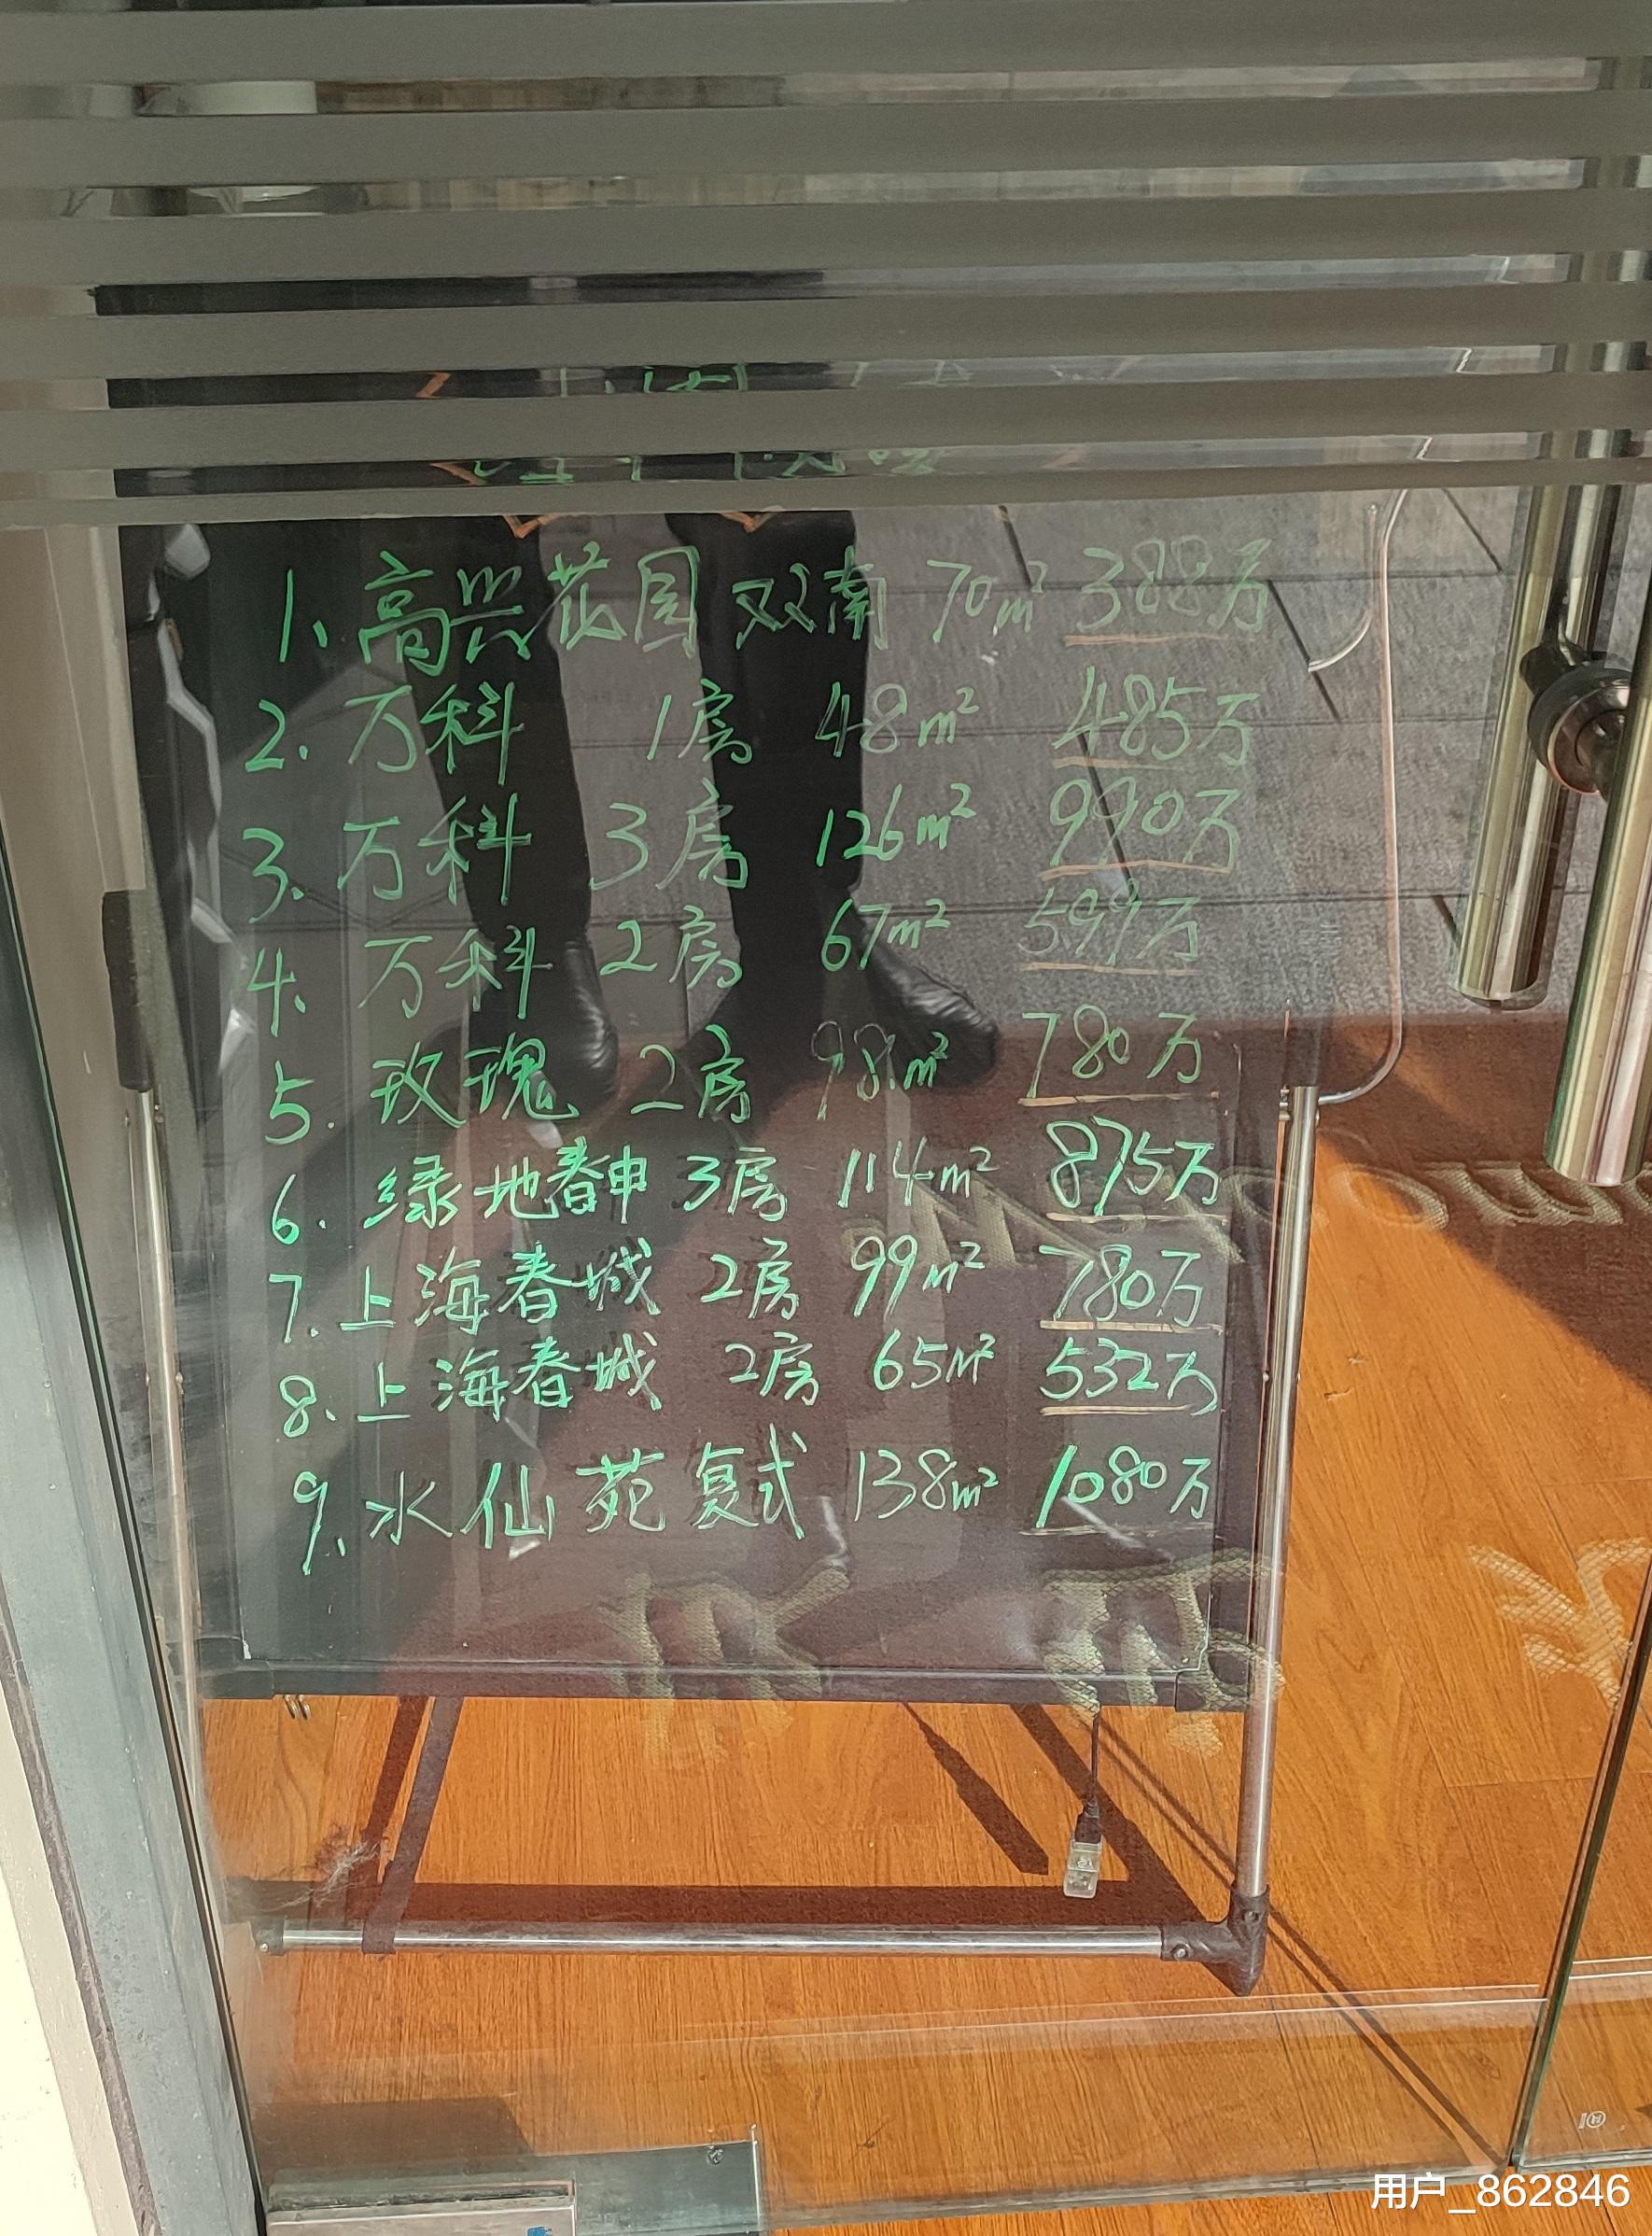 1、高兴花园 双南 70m² 388万
2. 万科 1房 48m² 485万
3、万科 3房 126m² 990万
4、万科 2房 67m² 599万
5. 玫瑰 2房 98m² 780万
6. 绿地春申 3房 114m² 875万
7. 上海春城 2房 99m² 780万
8. 上海春城 2房 65m² 532万
9、水仙苑复式 138m² 1080万
用户_862846